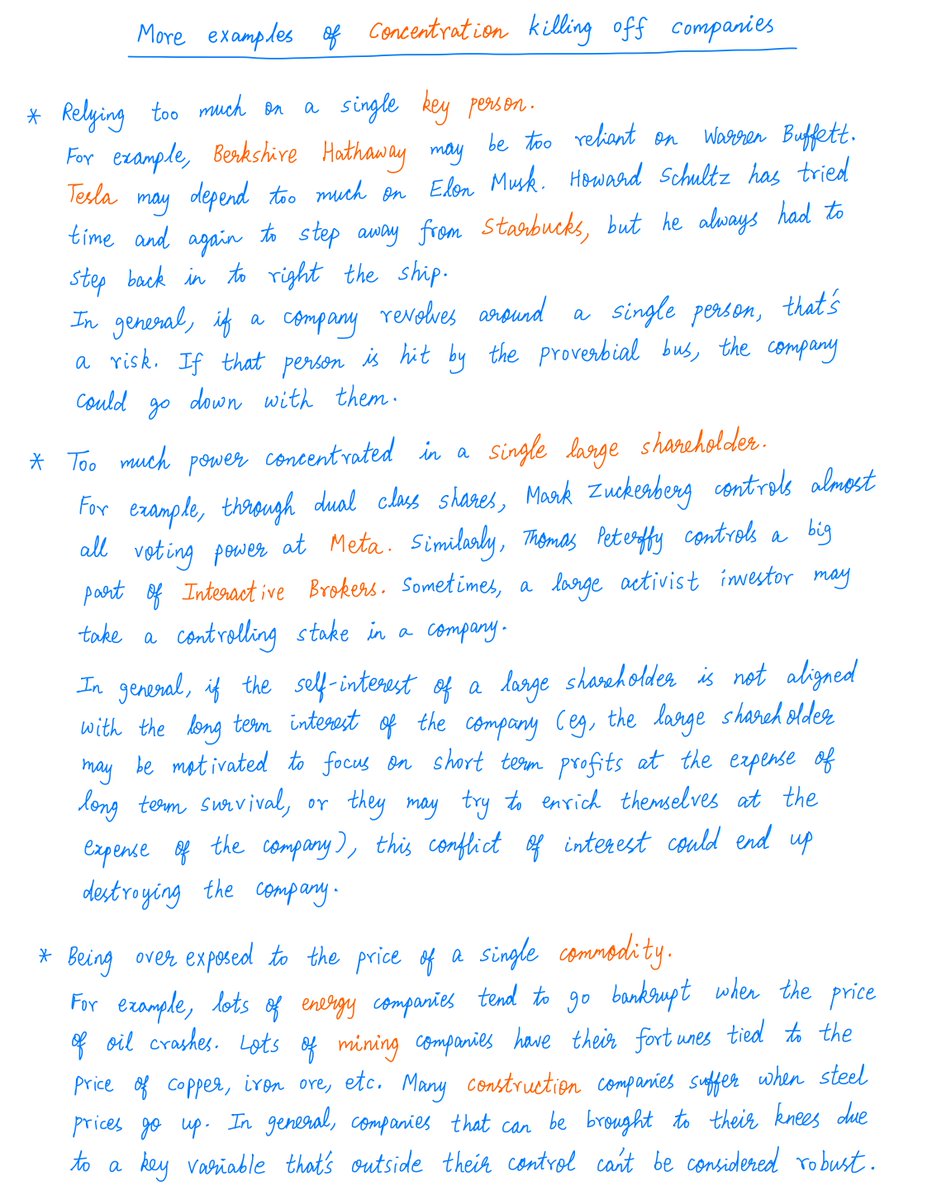 More examples of Concentration killing off companies
* Relying too much on a single key person.
For example, Berkshire Hathaway may be too reliant on Warren Buffett.
Tesla may depend too much on Elon Musk. Howard Schultz has tried
time and again to step away from Starbucks, but he always had to
step back in to right the ship.
In general, if a company revolves around a single person, that's
a risk. If that person is hit by the proverbial bus, the company
could go down with them.
* Too much power concentrated in a single large shareholder.
For example, through dual class shares, Mark Zuckerberg controls almost
all voting power at Meta. Similarly, Thomas Peterffy controls a big
part of Interactive Brokers. Sometimes, a large activist investor may
take a controlling stake in a company.
In general, if the self-interest of a large shareholder is not aligned
with the long term interest of the company (eg, the large shareholder
may be motivated to focus on short term profits at the expense of
long term survival, or they may try to enrich themselves at the
expense of the company), this conflict of interest could end up
destroying the company.
* Being over exposed to the price of a single commodity.
For example, lots of energy companies tend to go bankrupt when the price
of oil crashes. Lots of mining companies have their fortunes tied to the
price of copper, iron ore, etc. Many construction companies suffer when steel
prices go up. In general, companies that can be brought to their knees due
to a key variable that's outside their control can't be considered robust.